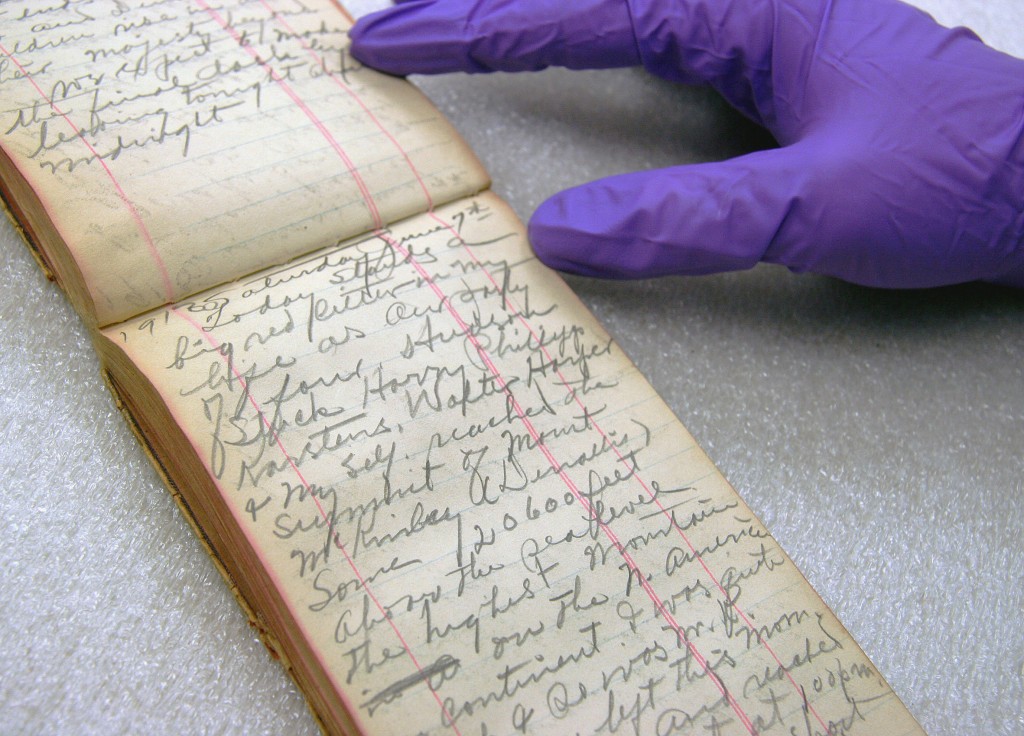 and
children
her majesty beyond
theNos 4 just to make
the final dash by
leaving tonight after
midnight
1913 Saturday June 7th
Today stands a
big red letter in my
life as our party
of four Hudson
Stuck Harry Phillipp
Karstens, Walter Harper
& my self. reached the
summit of Mount
McKinley (Denallis)
Some 20600 feet
above the sea leve
the highest mountain
on the N. America
continent I was quite
& so was Mr. H
left this morn.
and reached
at 1:00 pm
short